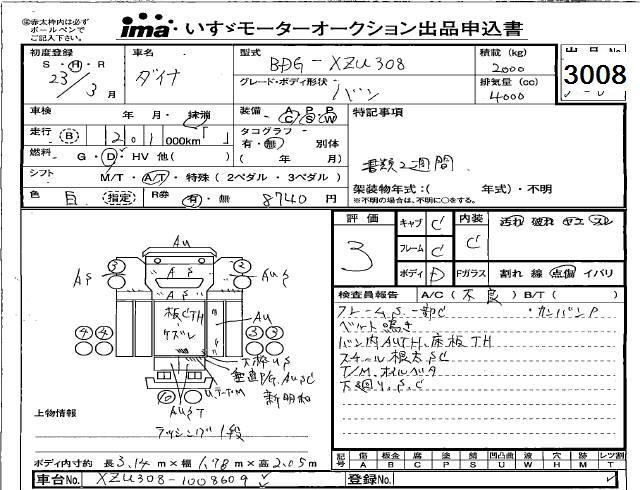 ㊟赤太枠内は必ず
ボールペンで
ご記入下さい。
ima いすゞモーターオークション出品申込書
初度登録 S・H・R 23/3月
車名 ダイナ
型式 BDG-XZU308
グレード・ボディ形状 バン
積載(kg) 2000
排気量(cc) 4000
出品No. 3008
車検 年 月・抹消
装備 A/C P/S P/W
特記事項
走行 B 201 000km
タコグラフ 有・無 別体
( 年 月)
燃料 G・D・HV 他( )
書類2週間
シフト M/T・A/T・特殊(2ペダル・3ペダル)
架装物年式:( 年式)・不明
※不明の場合は、不明に○をする。
色 白 (指定) R券 有・無 8740円
評価 3
キャブ C 内装 C 汚れ 破れ ヤエ スレ
フレーム C
ボディ D Fガラス 割れ 線 点傷 イバリ
検査員報告 A/C(不良) B/T( )
フレームS一部C ・カンバンP
ベルト鳴き
バン内AUTH、床板TH
スチール根太SC
T/M、オイルベタ
下廻りS、C
AU
AS
板CTH
ケズレ
AU
③ ③
④ ④ ③ ③
AUST
新明和
上物情報
ラッシング1段
ボディ内寸約 長3.14m×幅1.78m×高2.05m
記号 傷 A 板金 B 腐 C 塗 P 錆 S 凹凸曲 U 波 W 穴 H 跡 M レツ割 T
車台No. XZU308-1008609
登録No.